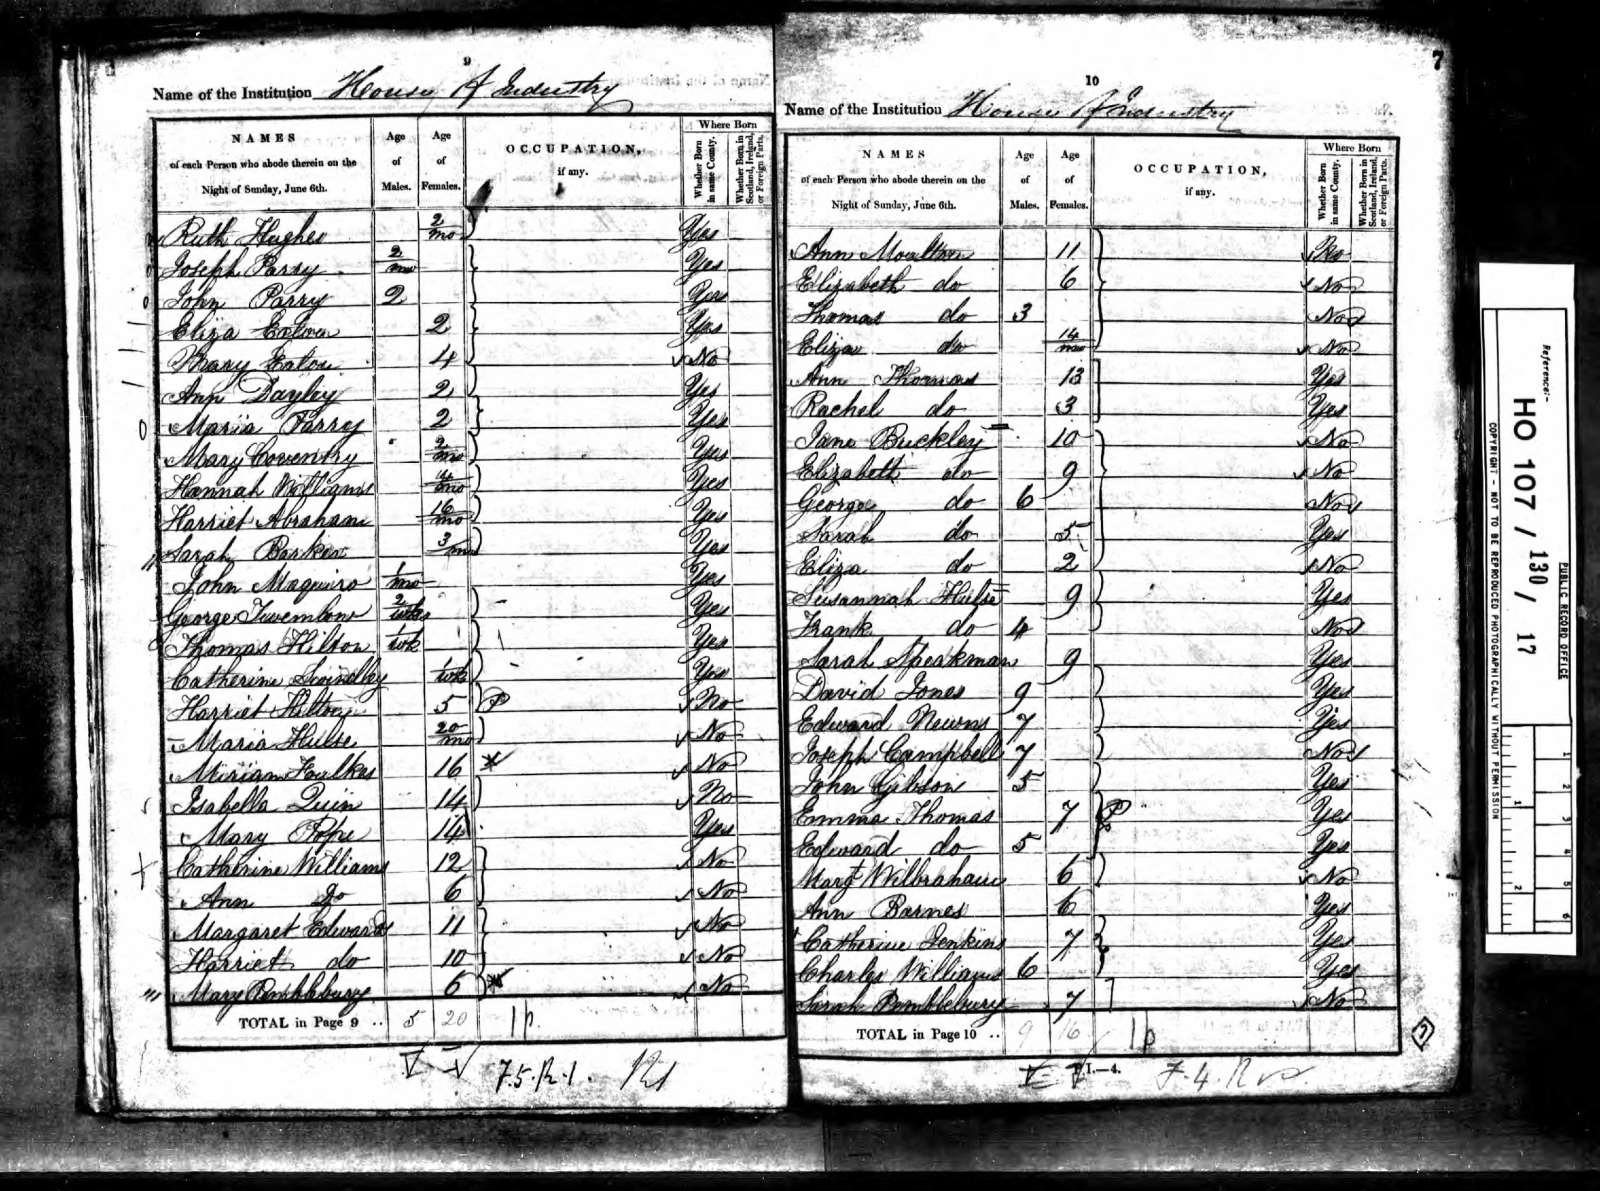 9
Name of the Institution House of Industry
NAMES
of each Person who abode therein on the
Night of Sunday, June 6th.
Age of Males.
Age of Females.
OCCUPATION, if any.
Where Born
Whether Born in same County.
Whether Born in Scotland, Ireland, or Foreign Parts.
Ruth Hughes 2/mo Yes
Joseph Parry 2/mo Yes
John Parry 2 Yes
Eliza 2 Yes
Mary Eaton 4 No
Ann Dayley 2 Yes
Maria Parry 2 Yes
Mary Coventry 2/mo Yes
Hannah Williams /mo Yes
Harriet Abraham 16/mo Yes
Sarah Barker 3/mo Yes
John Maguire 1/mo Yes
George Twemlow 2/wks Yes
Thomas Hilton 1/wk Yes
Catherine 1/wk Yes
Harriet Hilton 5 P No
Maria Hulse 20/mo No
Miriam Foulkes 16 No
Isabella Quin 14 No
Mary Pope 14 Yes
Catherine Williams 12 No
Ann Do 6 No
Margaret Edwards 11 No
Harriet do 10 No
Mary Pemblebury 6 No
TOTAL in Page 9 .. 5 20 1p.
7.5.R.1.
10
7
Name of the Institution House of Industry
NAMES
of each Person who abode therein on the
Night of Sunday, June 6th.
Age of Males.
Age of Females.
OCCUPATION, if any.
Where Born
Whether Born in same County.
Whether Born in Scotland, Ireland, or Foreign Parts.
Ann Moulton 11 Yes
Elizabeth do 6 No
Thomas do 3 No
Eliza do 14/mo No
Ann Thomas 13 Yes
Rachel do 3 Yes
Jane Buckley 10 No
Elizabeth do 9 No
George do 6 No
Sarah do 5 Yes
Eliza do 2 No
Susannah Hulse 9 Yes
Frank do 4 No
Sarah Speakman 9 Yes
David Jones 9 Yes
Edward Newns 7 Yes
Joseph Campbell 7 No
John Gibson 5 Yes
Emma Thomas 7 P Yes
Edward do 5 Yes
Margt Wilbraham 6 No
Ann Barnes 6 Yes
Catherine Jenkins 7 Yes
Charles Williams 6 Yes
Sarah Pemblebury 7 No
TOTAL in Page 10 .. 9 16 1p
I.—4.
Reference:-
HO 107 / 130 / 17
PUBLIC RECORD OFFICE
COPYRIGHT - NOT TO BE REPRODUCED PHOTOGRAPHICALLY WITHOUT PERMISSION
1 2 3 4 5 6
1 2